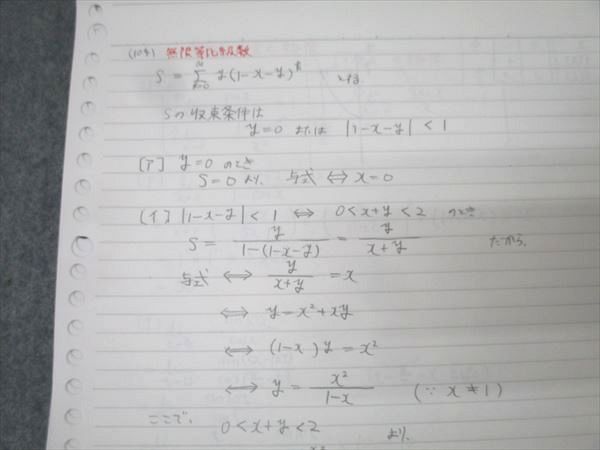 (104) 無限等比級数
S = ∞Σk=0 y(1-x-y)^k とする
Sの収束条件は
y=0 または |1-x-y| < 1
[ア] y=0 のとき
S=0 より、 与式 ⇔ x=0
[イ] |1-x-y| < 1 ⇔ 0<x+y<2 のとき
S = y/(1-(1-x-y)) = y/(x+y) だから、
与式 ⇔ y/(x+y) = x
⇔ y=x²+xy
⇔ (1-x)y = x²
⇔ y = x²/(1-x) (∵ x≠1)
ここで、
0<x+y<2 より、